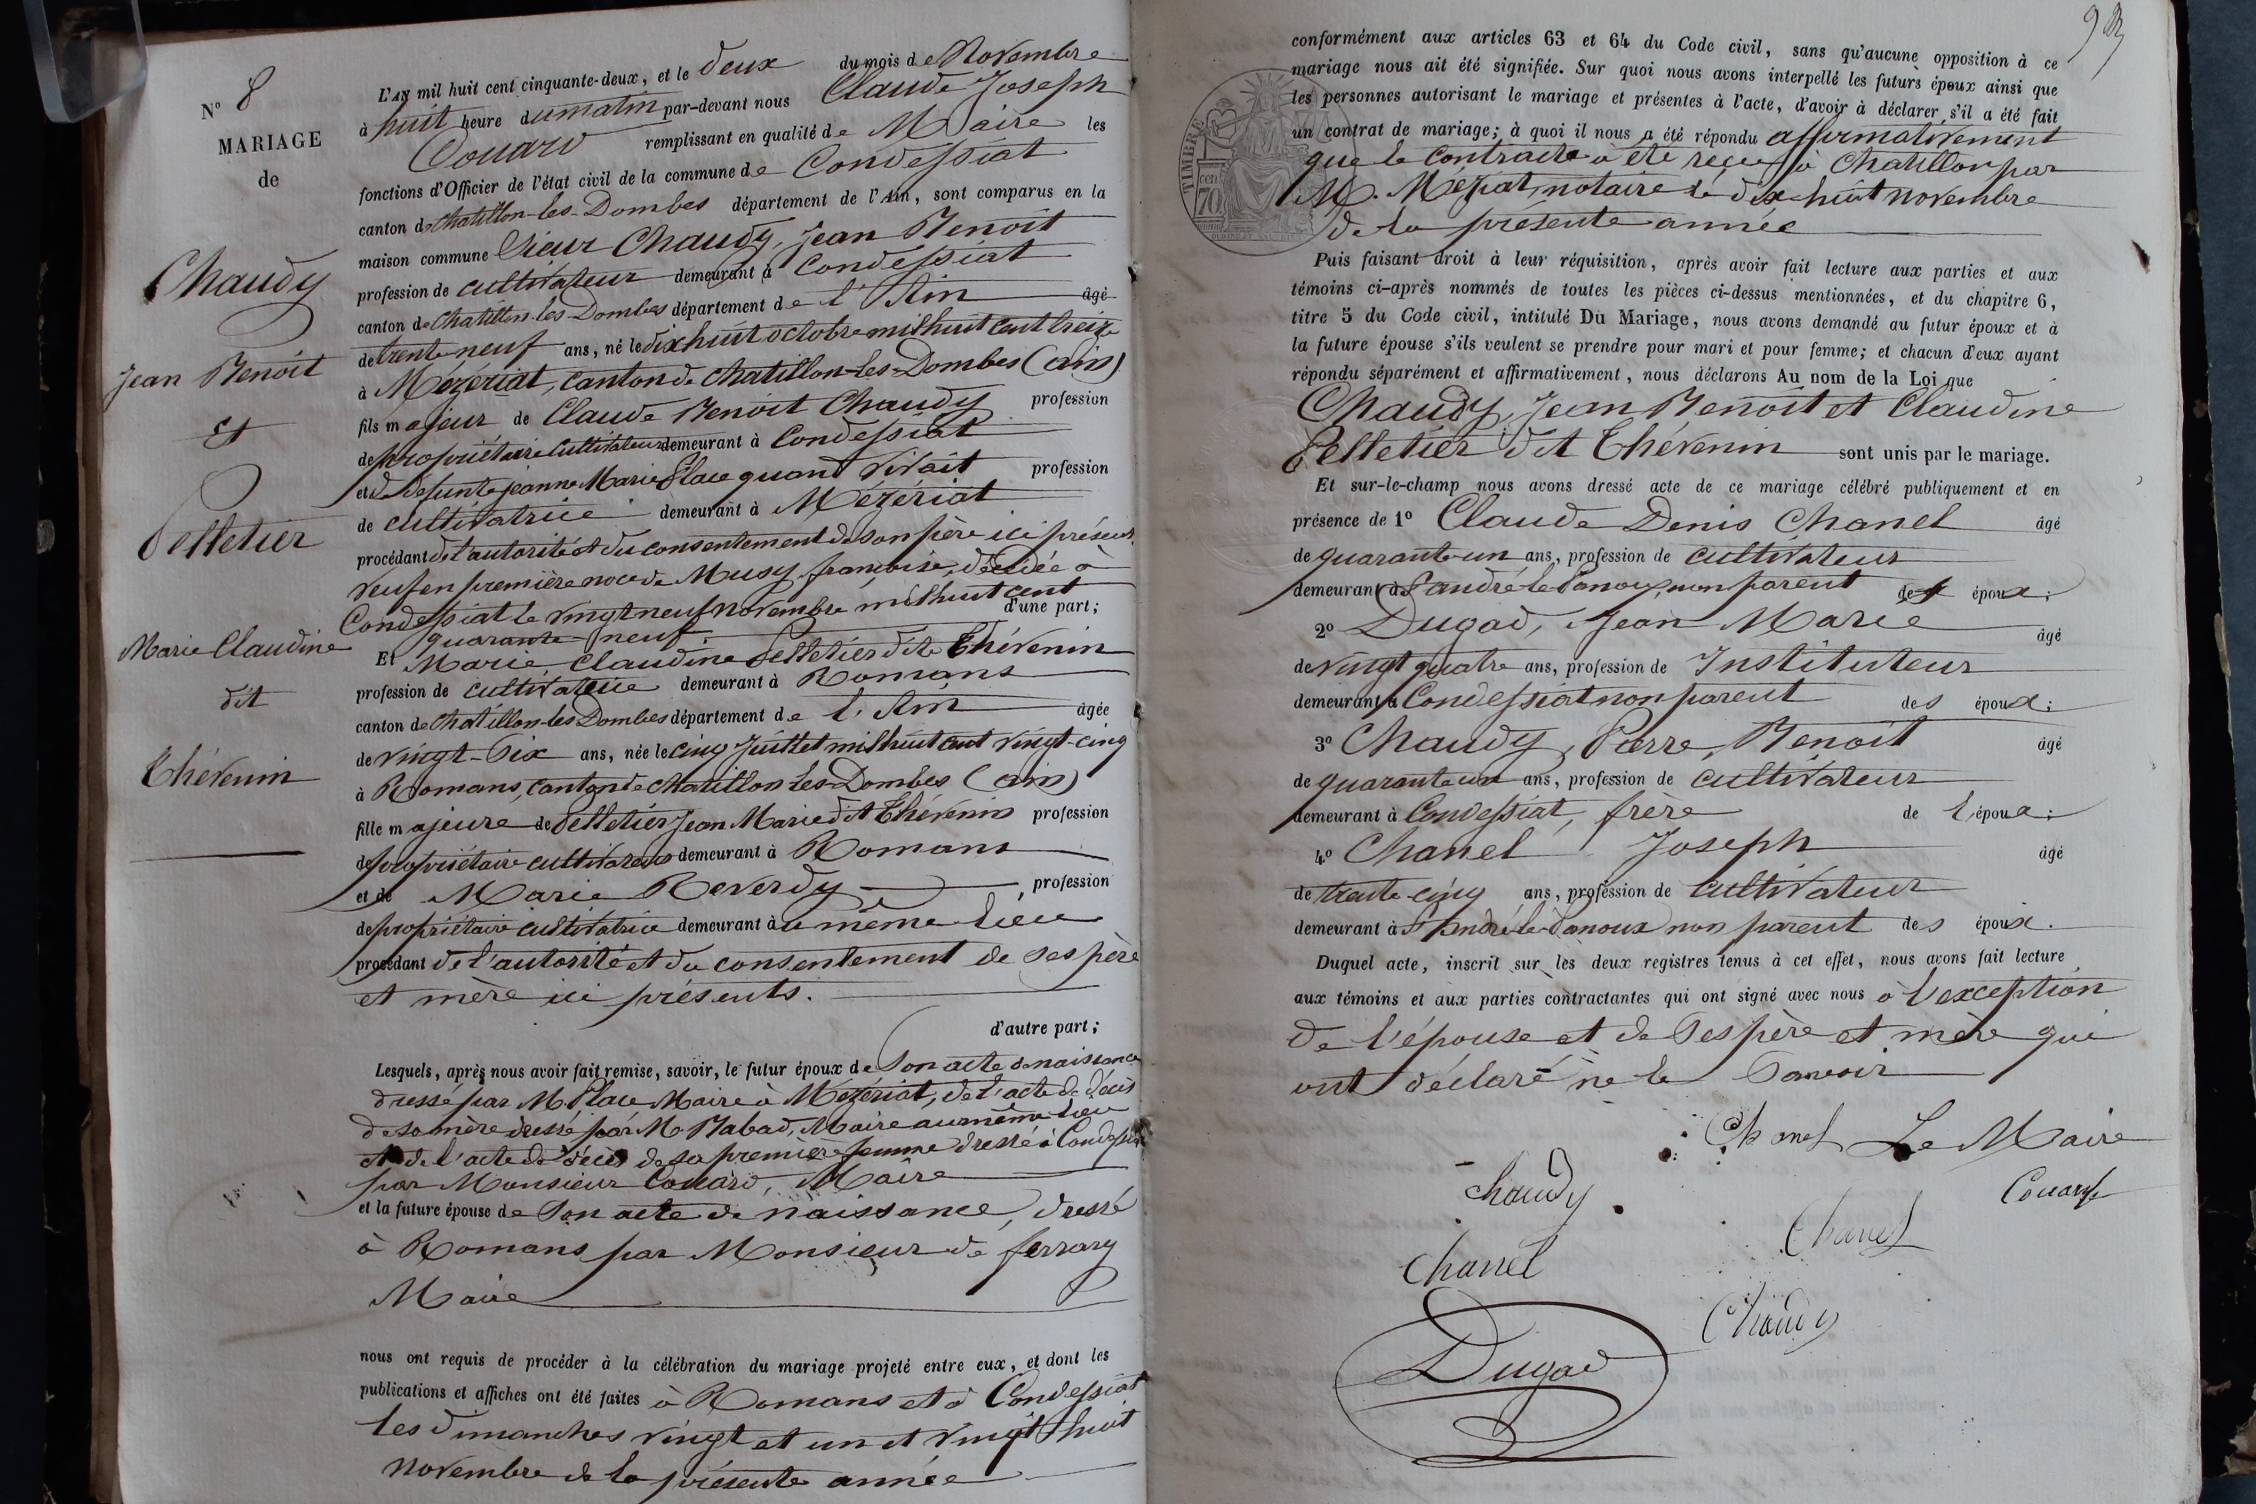 N.º 8
MARIAGE
de
Chaudy
Jean Benoit
et
Pelletier
Marie Claudine
dit
Thévenin
L'AN mil huit cent cinquante-deux, et le deux du mois de Novembre
à huit heure du matin par-devant nous Claude Joseph
Couard remplissant en qualité de Maire les
fonctions d'Officier de l'état civil de la commune de Condessiat
canton de Chatillon-les-Dombes département de l'Ain, sont comparus en la
maison commune Sieur Chaudy, Jean Benoit
profession de cultivateur demeurant à Condessiat
canton de Chatillon-les-Dombes département de l'Ain âgé
de trente neuf ans, né le dix huit octobre mil huit cent treize
à Mézériat, canton de Chatillon-les-Dombes (ain)
fils majeur de Claude Benoit Chaudy profession
de propriétaire cultivateur demeurant à Condessiat
et de defunte jeanne Marie Place quand vivait profession
de cultivatrice demeurant à Mézériat
procédant de l'autorité et du consentement de son père ici présent
veuf en première noce de Musy françoise, décédée à
Condessiat le vingt neuf novembre mil huit cent
quarante neuf. d'une part;
Et Marie Claudine Pelletier dite Thévenin
profession de cultivatrice demeurant à Romans
canton de Chatillon-les-Dombes département de l'Ain âgée
de vingt-six ans, née le cinq Juillet mil huit cent vingt-cinq
à Romans, canton de Chatillon-les-Dombes (ain)
fille majeure de Pelletier Jean Marie dit Thévenin profession
de propriétaire cultivateur demeurant à Romans
et de Marie Reverdy profession
de propriétaire cultivatrice demeurant à u même lieu
procédant de l'autorité et du consentement de ses père
et mère ici présents.
d'autre part;
Lesquels, après nous avoir fait remise, savoir, le futur époux de Son acte de naissance
dressé par M. Place Maire à Mézériat, de l'acte de décès
de sa mère dressé par M. Rabad, Maire au même lieu
et de l'acte de décès de sa première femme dressé à Condessiat
par Monsieur Couard, Maire
et la future épouse de Son acte de naissance, dressé
à Romans par Monsieur de ferrary
Maire
nous ont requis de procéder à la célébration du mariage projeté entre eux, et dont les
publications et affiches ont été faites à Romans et à Condessiat
les dimanches vingt et un et vingt huit
novembre de la présente année
conformément aux articles 63 et 64 du Code civil, sans qu'aucune opposition à ce
mariage nous ait été signifiée. Sur quoi nous avons interpellé les futurs époux ainsi que
les personnes autorisant le mariage et présentes à l'acte, d'avoir à déclarer s'il a été fait
un contrat de mariage; à quoi il nous a été répondu affirmativement
que le contracte a été reçu à Chatillon par
M. Méziat, notaire le dix huit novembre
de la présente année
TIMBRE
cen
70
Puis faisant droit à leur réquisition, après avoir fait lecture aux parties et aux
témoins ci-après nommés de toutes les pièces ci-dessus mentionnées, et du chapitre 6,
titre 5 du Code civil, intitulé Du Mariage, nous avons demandé au futur époux et à
la future épouse s'ils veulent se prendre pour mari et pour femme; et chacun d'eux ayant
répondu séparément et affirmativement, nous déclarons Au nom de la Loi que
Chaudy, Jean Benoit et Claudine
Pelletier dit Thévenin sont unis par le mariage.
Et sur-le-champ nous avons dressé acte de ce mariage célébré publiquement et en
présence de 1º Claude Denis Chanel âgé
de quarante-un ans, profession de cultivateur
demeurant à S.andré le Panoux, non parent des époux;
2º Dugad, Jean Marie âgé
de vingt quatre ans, profession de Instituteur
demeurant à Condessiat non parent des époux;
3º Chaudy, Pierre, Benoit âgé
de quarante un ans, profession de cultivateur
demeurant à Condessiat, frère de l'époux;
4.º Chanel Joseph âgé
de trente-cinq ans, profession de cultivateur
demeurant à S.t André le Panoux non parent des époux.
Duquel acte, inscrit sur les deux registres tenus à cet effet, nous avons fait lecture
aux témoins et aux parties contractantes qui ont signé avec nous à l'exception
de l'épouse et de Ses père et mère qui
ont déclaré ne le Savoir
Chanel Le Maire
Chaudy Couard
Chanel Chanel
Chaudy
Dugad